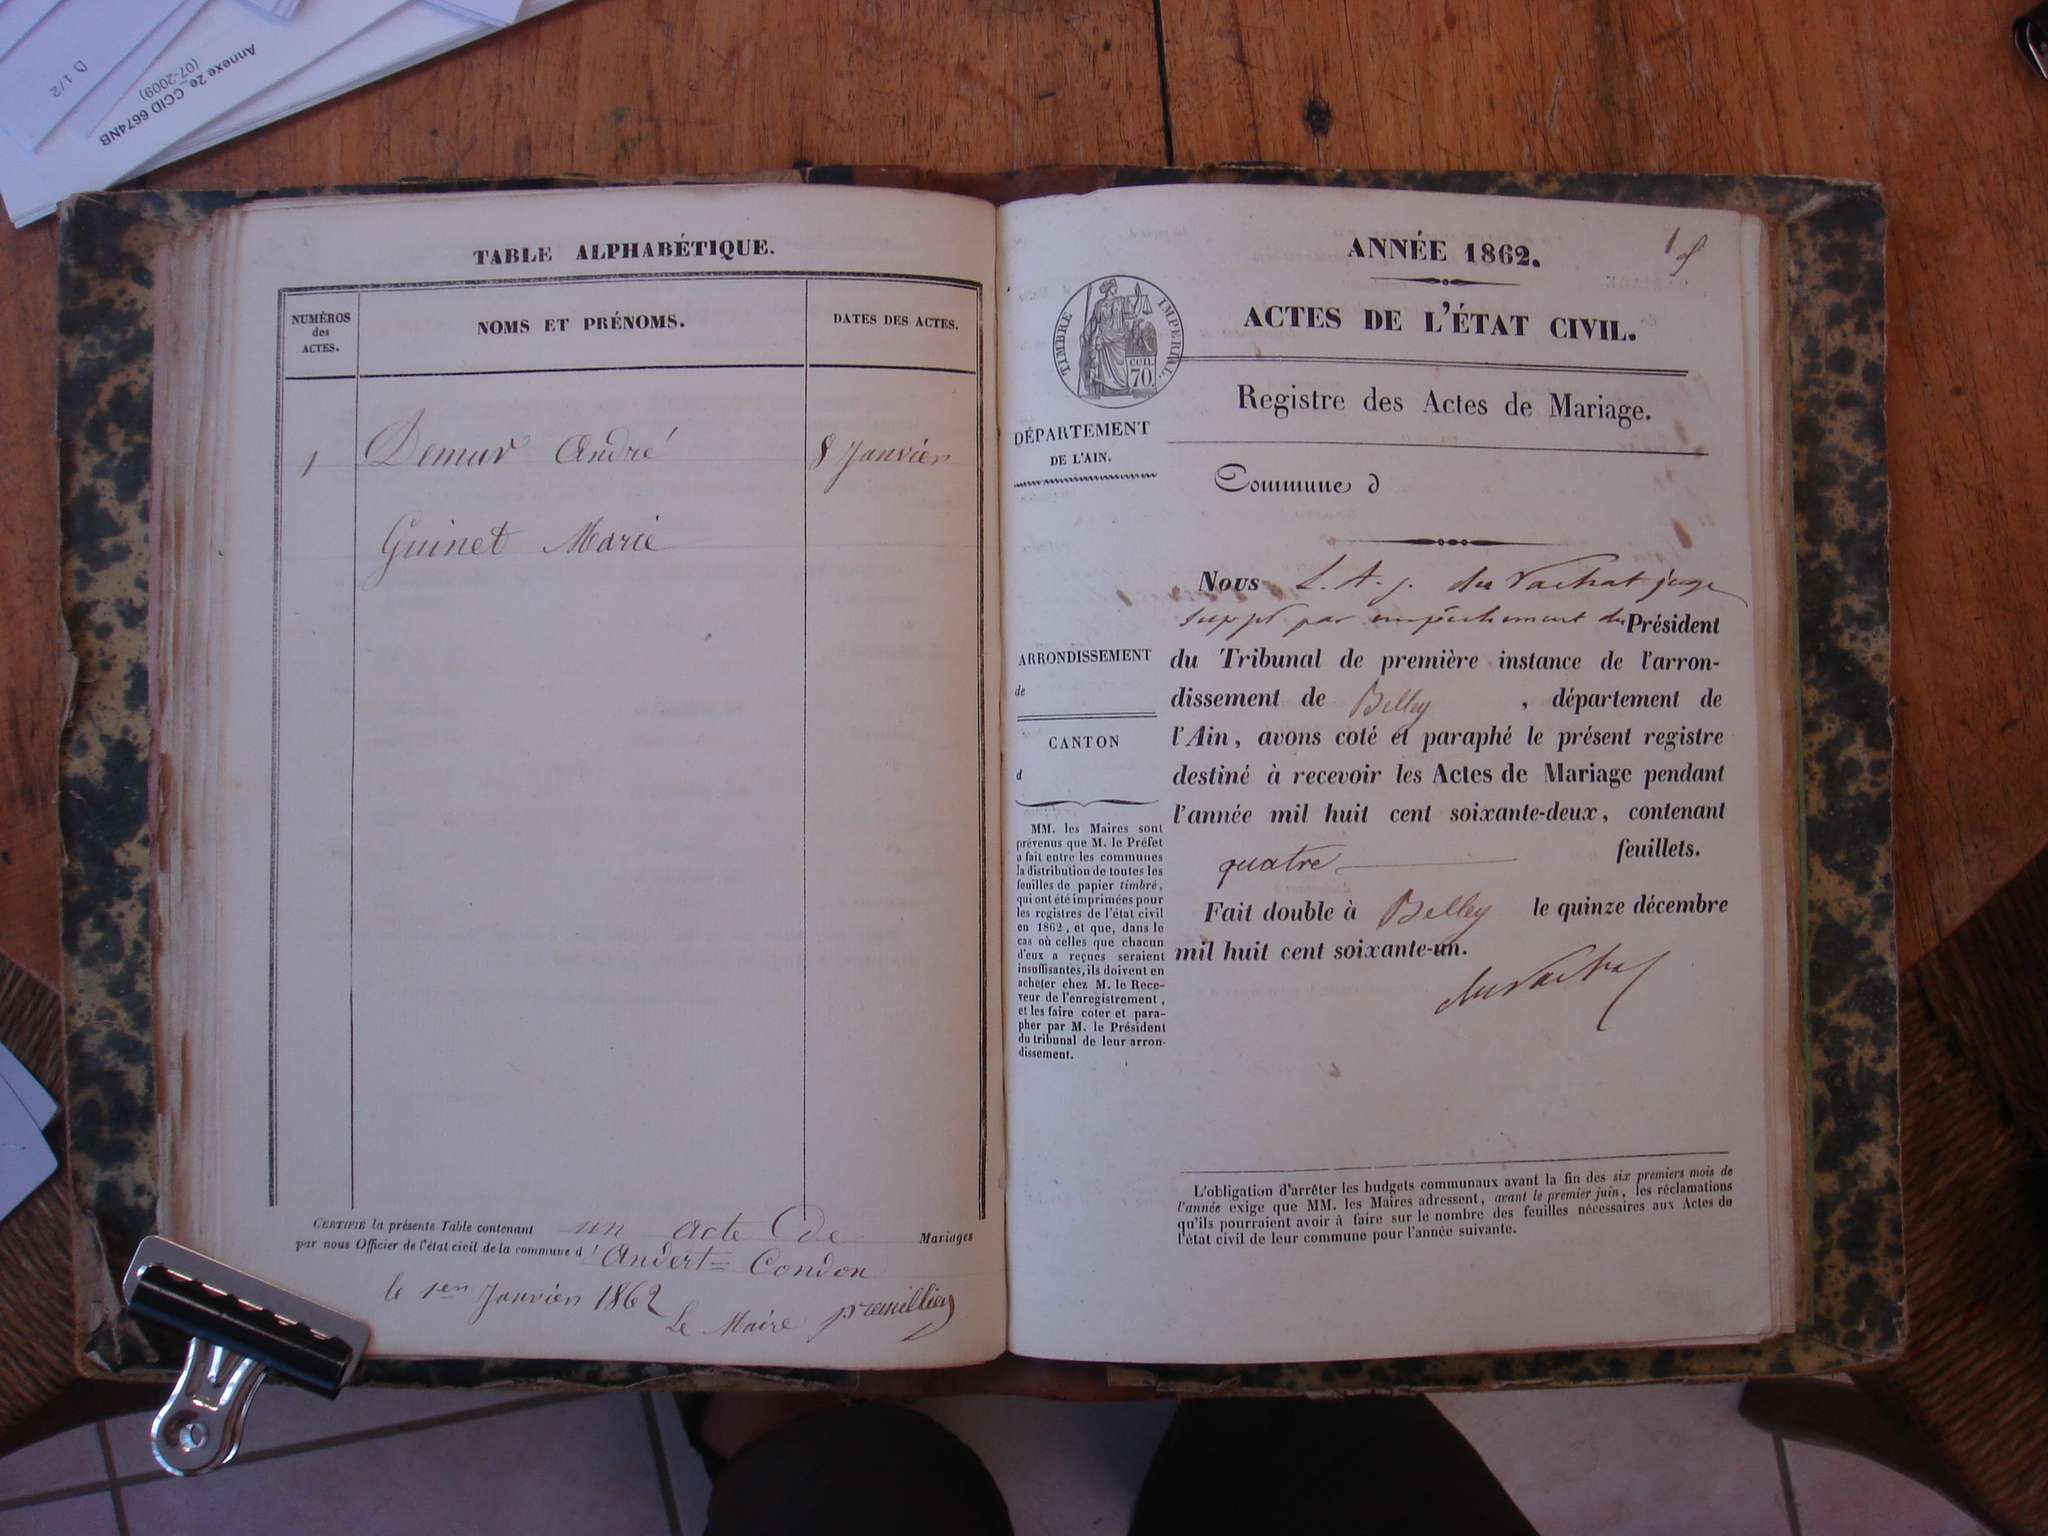 Annexe 2e_CCID 6674NB
(07-2009)
D 1/2
TABLE ALPHABÉTIQUE.
NUMÉROS
des
ACTES.
NOMS ET PRÉNOMS.
DATES DES ACTES.
1 Demur André 8 Janvier
Guinet Marie
CERTIFIÉ la présente Table contenant un acte De Mariages
par nous Officier de l'état civil de la commune d'Andert=Condon
le 1er Janvier 1862
Le Maire premillieu
ANNÉE 1862.
1
ACTES DE L'ÉTAT CIVIL.
TIMBRE IMPÉRIAL.
cen.
70.
Registre des Actes de Mariage.
DÉPARTEMENT
DE L'AIN.
Commune d
ARRONDISSEMENT
de
CANTON
d
MM. les Maires sont
prévenus que M. le Préfet
a fait entre les communes
la distribution de toutes les
feuilles de papier timbré,
qui ont été imprimées pour
les registres de l'état civil
en 1862, et que, dans le
cas où celles que chacun
d'eux a reçues seraient
insuffisantes, ils doivent en
acheter chez M. le Rece-
veur de l'enregistrement,
et les faire coter et para-
pher par M. le Président
du tribunal de leur arron-
dissement.
Nous L. A. J. du Vachat juge
suppt par empêchement du Président
du Tribunal de première instance de l'arron-
dissement de Belley, département de
l'Ain, avons coté et paraphé le présent registre
destiné à recevoir les Actes de Mariage pendant
l'année mil huit cent soixante-deux, contenant
quatre feuillets.
Fait double à Belley le quinze décembre
mil huit cent soixante-un.
du Vachat
L'obligation d'arrêter les budgets communaux avant la fin des six premiers mois de
l'année exige que MM. les Maires adressent, avant le premier juin, les réclamations
qu'ils pourraient avoir à faire sur le nombre des feuilles nécessaires aux Actes de
l'état civil de leur commune pour l'année suivante.